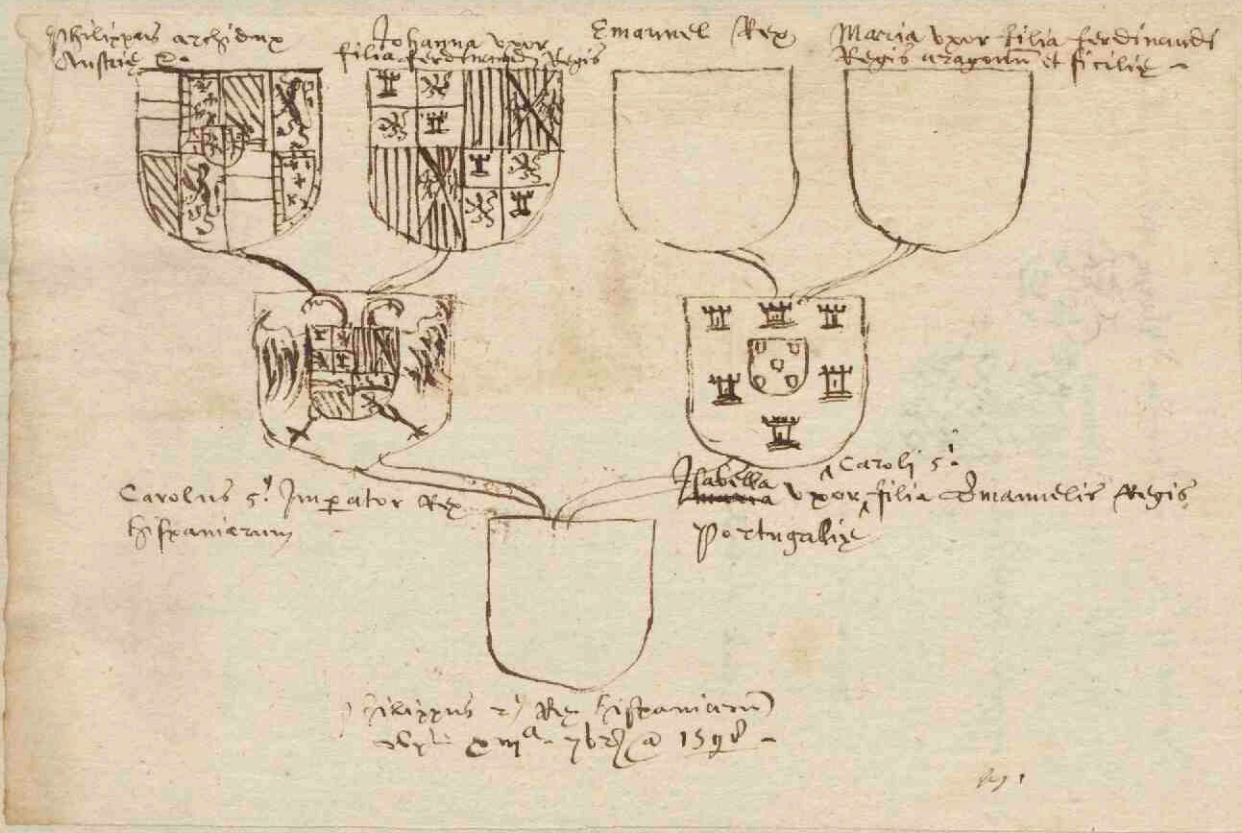 Philippus archidux
Austrię &.
Johanna vxor
filia ferdinandi Regis
Emanuel Rex
Maria vxor filia ferdinandi
Regis aragonū et sicilię -
Carolus 5.ᵘˢ Imperator Rex
hispaniarum
Caroli 5.ⁱ
Isabella vxor filia Emanuelis Regis
maria
Portugallię
Philippus 2ᵘˢ Rex hispaniarū
obijt xiijᵃ 7bris aº 1598 -